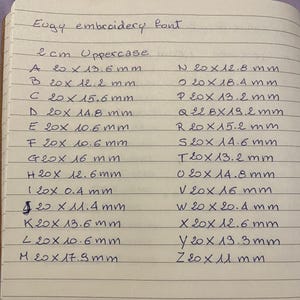 Eugy embroidery font
2 cm Uppercase
A 20 x 13.6 mm
B 20 x 12.2 mm
C 20 x 15.6 mm
D 20 x 14.8 mm
E 20 x 10.6 mm
F 20 x 10.6 mm
G 20 x 16 mm
H 20 x 12.6 mm
I 20 x 0.4 mm
J 20 x 11.4 mm
K 20 x 13.6 mm
L 20 x 10.6 mm
M 20 x 17.9 mm
N 20 x 12.8 mm
O 20 x 18.4 mm
P 20 x 13.2 mm
Q 22.8 x 19.2 mm
R 20 x 15.2 mm
S 20 x 14.6 mm
T 20 x 13.2 mm
U 20 x 14.8 mm
V 20 x 16 mm
W 20 x 20.4 mm
X 20 x 12.6 mm
Y 20 x 13.3 mm
Z 20 x 11 mm